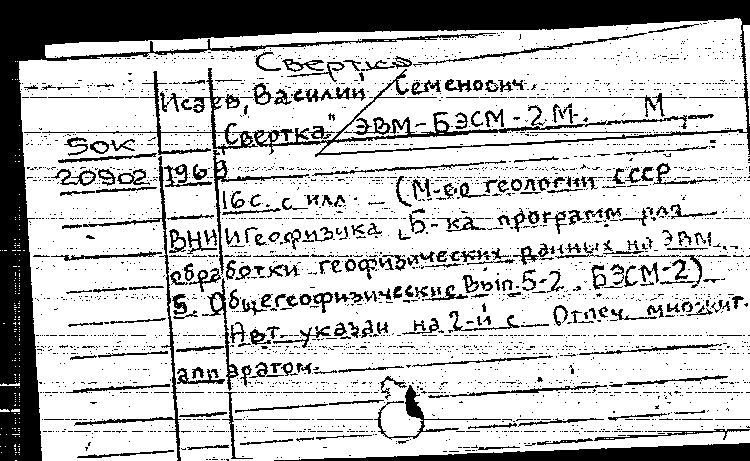 Свертка
Исаев, Василий Семенович.
"Свертка" ЭВМ-БЭСМ-2М. М.,
50к
20902 1969
16с. с илл. (М-во геологии СССР
ВНИИГеофизика. Б-ка программ для
обработки геофизических данных на ЭВМ.
5. Общегеофизические Вып. 5-2. БЭСМ-2)
Авт. указан на 2-й с. Отпеч. множит.
аппаратом.